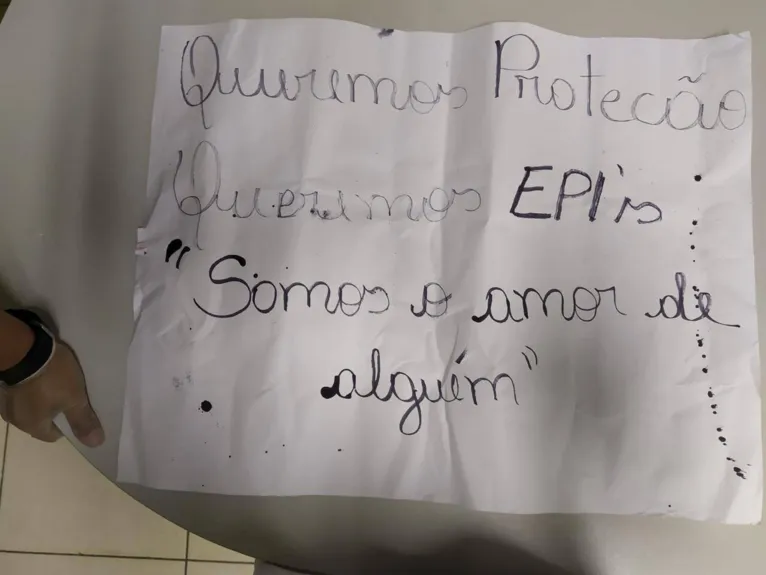 Queremos Protecão
Queremos EPI's
"Somos o amor de
alguém"